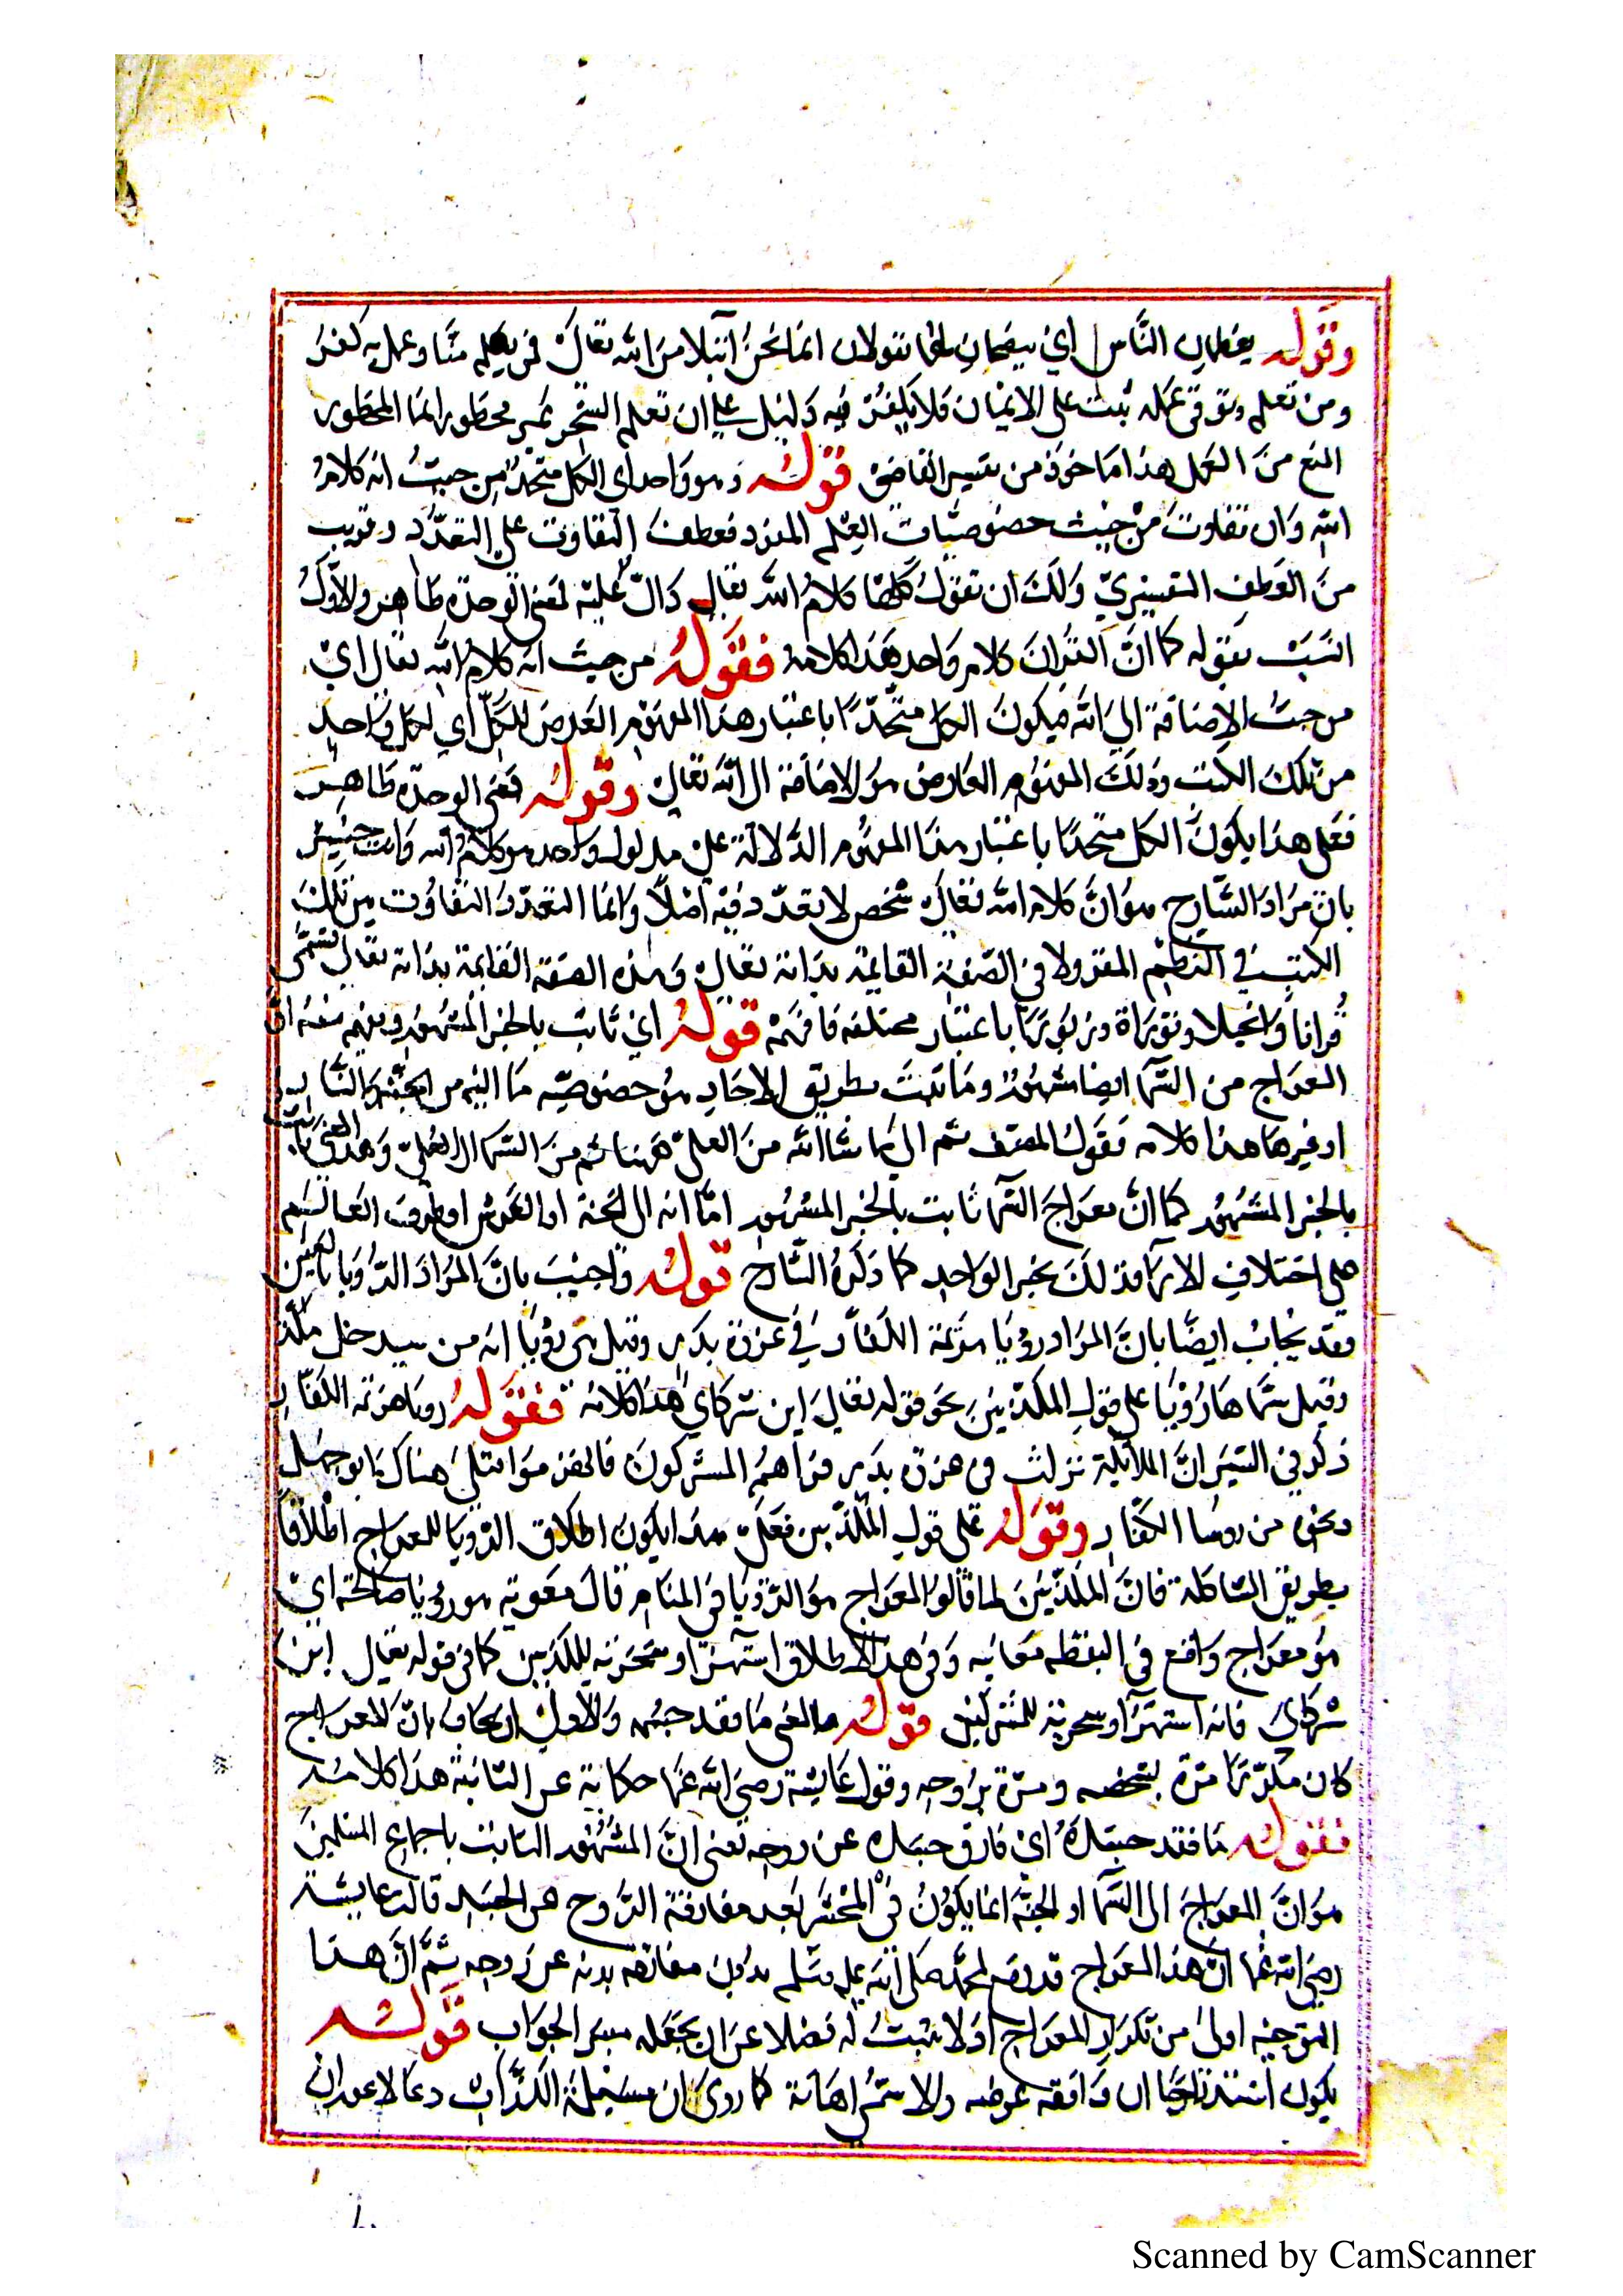 وقوله يعظان الناس أي ينصحان لهما يقولان انما نحن ابتلا من الله تعالى فمن تعلم منا وعمل به كفر
ومن تعلم وتوقى عمله ثبت على الايمان فلا يكفر فيه دليل على ان تعلم السحر غير محظور انما المحظور
المنع من العمل هذا ماخوذ من تفسير القاضى قوله وهو واحد اى الكل متحد من حيث انه كلام
الله وان تفاوت من حيث خصوصيات العلم المفرد فعطف التفاوت على التعدد قريب
من العطف التفسيري ولك ان تقول كلها كلام الله تعالى دال عليه لمعنى الوحدة ظاهر والاول
انسب بقوله كما ان القران كلام واحد هذا كلامه فقوله من حيث انه كلام الله تعالى اي
من حيث الاضافة الي الله فيكون الكل متحدًا باعتبار هذا المفهوم العارض للكل اي لكل واحد
من تلك الكتب وذلك المفهوم العارض هو الاضافة الى الله تعالى وقوله فمعنى الوحدة ظاهر
فعلى هذا يكون الكل متحدا باعتبار هذا المفهوم الدلالة على مدلول واحد هو كلام الله وانت خبير
بان مراد الشارح هو ان كلام الله تعالى شخص لا تعدد فيه اصلا وانما التعدد والتفاوت بين تلك
الكتب في النظم المقرو لا في الصفة القايمة بذاته تعالى وهذه الصفة القايمة بذاته تعالى تسمى
قرانا وانجيلا وتوراة وزبورا باعتبار مختلفة فافهم قوله اي ثابت بالخبر المشهور ويفهم منه ان
المعراج من السما ايضا مشهور وما ثبت بطريق الاحاد هو خصوصية ما اليه من الجنة
او غيرها هذا كلامه فقول المصنف ثم الي ما شا الله من العلى ههنا ثم من السما الى العلى وهذا
بالخبر المشهور كما ان معراج السما ثابت بالخبر المشهور اما انه الى الجنة او العرش او طرف العالم
على اختلاف الارا فذلك بخبر الواحد كما ذكره الشارح قوله واجيب بان المراد الرؤيا بالعين
وقد يجاب ايضا بان المراد رؤيا هزيمة الكفار في غزوة بدر وقيل هى رؤيا انه من سيدخل مكة
وقيل سماها رؤيا على قول المكذبين نحو قوله تعالى اين شركاي هذا كلامه فقوله رويا هزيمة الكفار
ذكر في السير ان الملائكة نزلت فى غزوة بدر فراهم المشركون فانهزموا فقتل هناك ابو جهل
ونحوه من روسا الكفار وقوله على قول المكذبين فعلى هذا يكون اطلاق الرويا للمعراج اطلاقا
بطريق المشاكلة فان المكذبين لما قالوا المعراج هو الرؤيا فى المنام قال معوية هو رؤيا صالحة اي
هو معراج واقع فى اليقظة معاينه وفى هذا الاطلاق استهزا وسخرية للمكذبين كما فى قوله تعالى اين
شركاى فانه استهزا وسخرية للمشركين قوله والمعنى ما فقد جسده والاولى ان يجاب بان المعراج
كان مكررا مرة بشخصه ومرة بروحه وقول عايشة رضي الله عنها حكاية عن الثانية هذا كلامه
فقوله ما فقد جسده اي فارق جسده عن روحه تعنى ان المشهور الثابت باجماع المسلمين
هو ان المعراج الى السما او الجنة انما يكون في المحشر بعد مفارقة الروح عن الجسد قالت عايشة
رضي الله عنها ان هذا المعراج قد وقع لمحمد صلى الله عليه وسلم بدون مفارقة بدنه عن روحه ثم ان هذا
التوجيه اولى من تكرار المعراج اذ لا يثبت له فضلا عن ان يجعله مبنى الجواب قوله
يكون استدراجا ان وافقه غرضه والا سمى اهانة كما روى ان مسيلمة الكذاب دعا لاعور ان